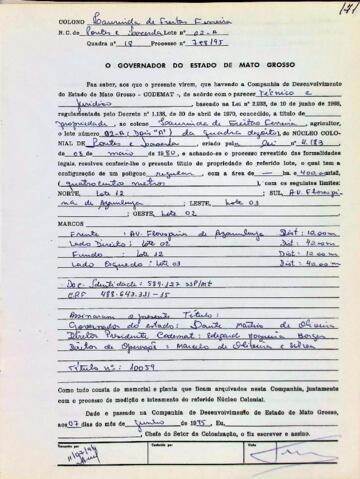 171
COLONO Laurinda de Freitas Ferreira
N. C. de Pontes e Lacerda Lote n° 02-A
Quadra n° 18 Processo n° 708/95
O GOVERNADOR DO ESTADO DE MATO GROSSO
Faz saber, aos que o presente virem, que havendo a Companhia de Desenvolvimento
do Estado de Mato Grosso - CODEMAT -, de acordo com o parecer Técnico e
Jurídico, baseado na Lei n° 2.033, de 10 de junho de
regulamentada pelo Decreto n° 1.138, de 30 de abril de 1970, concedido, a título de
propriedade, ao colono Laurinda de Freitas Ferreira, agricultor,
o lote número 02-A: Dois "A") da quadra dezoito, do NÚCLEO COLO-
NIAL de Pontes e Lacerda criado pela Lei n° 4.183
de 03 de maio 1980, e achando-se o processo revestido das formalidades
legais, resolveu conferir-lhe o presente título de propriedade do referido lote, o qual tem a
configuração de um polígono regular com a área de — ha e 400,00 m2,
(quatrocentos metros), com os seguintes limites:
NORTE, Lote 12; SUL, AV. Florispi-
na de Azambuja; LESTE, Lote 03
; OESTE, Lote 02
MARCOS
Frente : AV. Florispina de Azambuja Dist: 10,00m
Lado Direito: Lote 02 Dist: 40,00m
Fundo : Lote 12 Dist: 10,00m
Lado Esquerdo: Lote 03 Dist: 40,00m
Doc. Identidade: 589.127 SSP/MT
CPF 488.643.331-15
Assinaram o presente Título:
Governador do estado: Dante Martins de Oliveira
Diretor Presidente Codemat:
Diretor de Operação: Marcelo de Oliveira e Silva
Título n°: 10059
Como tudo consta do memorial e planta que ficam arquivados nesta Companhia, juntamente
com o processo de medição e loteamento do referido Núcleo Colonial.
Dado e passado na Companhia de Desenvolvimento do Estado de Mato Grosso,
aos 07 dias do mês de Junho de 1995, Eu,
, Chefe do Setor da Colonização, o fiz escrever e assino.
Transcrito por
Conferido por
Visto